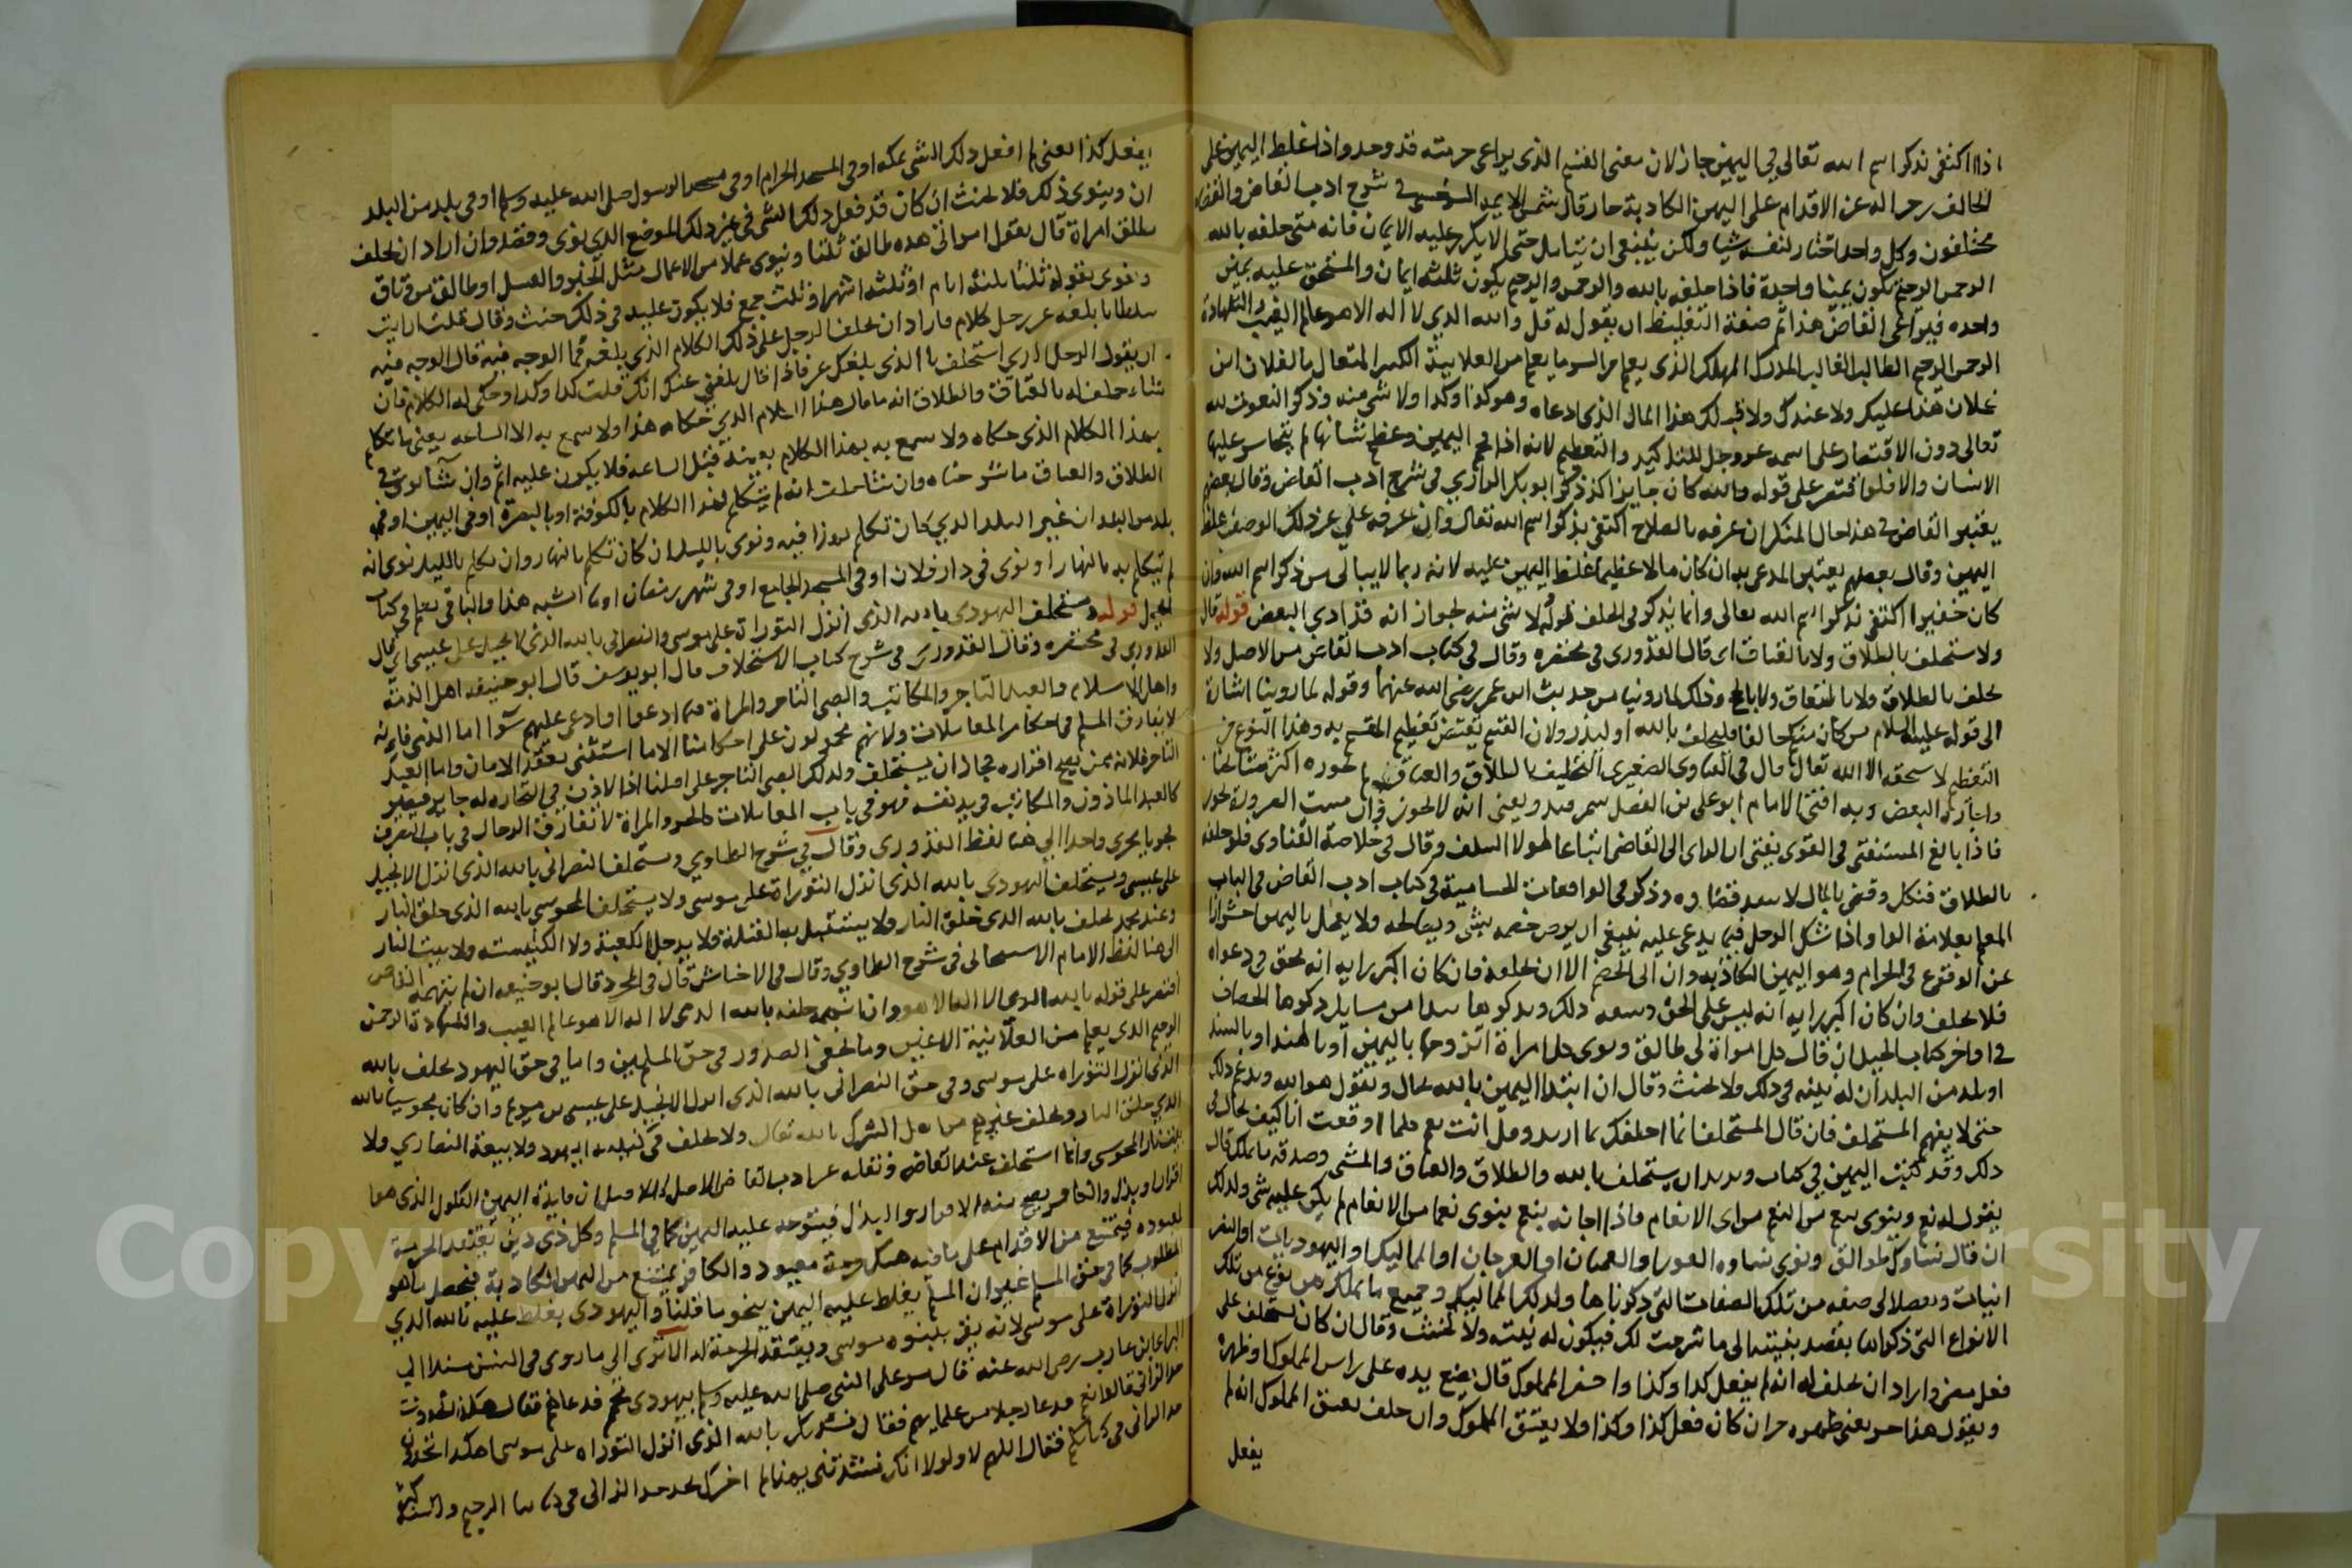 اذا اكتفى بذكر اسم الله تعالى في اليمين جاز لان معنى القسم الذي يراعى حرمته قد وجد واذا غلظ اليمين على
الحالف رجر اله عن الاقدام على اليمين الكاذبة جاز قال شمس الايمه السرخسي في شرح ادب القاضي والقضاة
مختلفون وكل واحد اختار لنفسه شيا ولكن ينبغي ان يتامل حتى لا يكرر عليه الايمان فانه متى حلفه بالله
الرحمن الرحيم تكون يمينا واحدة فاذا حلفه بالله والرحمن والرحيم يكون ثلثه ايمان والمستحق عليه يمين
واحده فيراعى القاضي هذا ثم صفة التغليظ ان يقول له قل والله الذي لا اله الا هو عالم الغيب والشهادة
الرحمن الرحيم الطالب الغالب المدرك المهلك الذي يعلم من السر ما يعلم من العلانية الكبير المتعال ما لفلان ابن
فلان هذا عليك ولا عندك ولا قبلك هذا المال الذي ادعاه وهو كذا وكذا ولا شي منه وذكر النعوت لله
تعالى دون الاقتصار على اسمه عز وجل للتاكيد والتعظيم لانه اذا فخم اليمين وعظم شانها لم يتجاسر عليها
الانسان والا فلو اقتصر على قوله والله كان جايزا كذا ذكر ابو بكر الرازي في شرح ادب القاضي وقال بعضهم
يعتبر القاضي في هذا حال المنكر ان عرفه بالصلاح اكتفى بذكر اسم الله تعالى وان عرفه على غير ذلك الوصف غلظ
اليمين وقال بعضهم يعتبر المدعى به ان كان مالا عظيما غلظ اليمين عليه لانه ربما لا يبالى من ذكر اسم الله وان
كان حقيرا اكتفى بذكر اسم الله تعالى وانما يذكر في الحلف قوله ولا شي منه لجواز انه قد ادي البعض قوله قال
ولا يستحلف بالطلاق ولا بالعتاق اى قال القدوري في مختصره وقال في كتاب ادب القاضي من الاصل ولا
يحلف بالطلاق ولا بالعتاق ولا بالحج وذلك لما روينا من حديث ابن عمر رضي الله عنهما وقوله لما روينا اشارة
الى قوله عليه السلام من كان منكم حالفا فليحلف بالله او ليذر ولان القسم يقتضي تعظيم المقسم به وهذا النوع من
التعظيم لا يستحقه الا الله تعالى قال في الفتاوى الصغرى التحليف بالطلاق والعتاق لم يجوزه اكثر مشايخنا
واجازه البعض وبه افتى الامام ابو علي بن الفضل بسمرقند ويعني انه لا يجوز وان مست الضرورة يجوز
فاذا بالغ المستفتي في الفتوى يفتى ان الراى الى القاضي اتباعا لهولا السلف وقال في خلاصة الفتاوى فلو حلفه
بالطلاق فنكل وقضى بالمال لا ينفذ قضاوه وذكر في الواقعات الحسامية في كتاب ادب القاضي في الباب
المعلم بعلامة الواو اذا شك الرجل فيما يدعى عليه ينبغي ان يرضي خصمه بشي ويصالحه ولا يعجل باليمين احترازا
عن الوقوع في الحرام وهو اليمين الكاذبه وان ابى الخصم الا ان يحلفه فان كان اكبر رايه انه محق في دعواه
فلا يحلف وان كان اكبر رايه انه ليس على الحق وسعه ذلك ويذكر ها هنا من مسايل ذكرها الخصاف
في اواخر كتاب الحيل ان قال كل امراة لي طالق ونوى كل امراة اتزوجها باليمين او بالهند او بالسند
او بلد من البلدان له نيته في ذلك ولا يحنث وقال ان ابتدا اليمين بالله يحال ويقول هو الله ويدغم ذلك
حتى لا يفهم المستحلف فان قال المستحلف انما احلفك بما اريد وقل انت نعم كلما اوقعت انا كيف يحال في
ذلك وقد كتبت اليمين في كتاب ويريد ان يستحلفه بالله والطلاق والعتاق والمشي وصدقه ما يملك قال
يقول له نعم وينوى نعم من النعم من اى الانعام فاذا اجابه بنعم ينوى نعما من الانعام لم يكن عليه شي ولذلك
ان قال نساوك طوالق ونوى نساوه العور او العميان او العرجان او المماليك او اليهوديات
الانواع التي ذكرناها بقصد بنيته الى ما شرحت لك فيكون له نيته ولا يحنث وقال ان كان يستحلف على
فعل مضى واراد ان يحلف له انه لم يفعل كذا وكذا واحضر المملوك قال يضع يده على راس المملوك او ظهره
ويقول هذا حر يعني ظهره حر ان كان فعل كذا وكذا ولا يعتق المملوك وان حلف بعتق المملوك انه لم
يفعل
يفعل كذا يعني لم افعل ذلك الشي بمكه او في المسجد الحرام او في مسجد الرسول صلى الله عليه وسلم او في بلد من البلد
ان وينوى ذلك فلا يحنث ان كان قد فعل ذلك الشي في غير ذلك الموضع الذي نوى وقصد وان اراد ان يحلف
بطلاق امراة قال يقول امراتي هذه طالق ثلثا وينوى عملا من الاعمال مثل الخبز والغسل او طالق من وثاق
ونوى بقوله ثلثا ثلثه ايام او ثلثه اشهر او ثلث جمع فلا يكون عليه في ذلك حنث وقال قلت ارايت
سلطانا بلغه عن رجل كلام فاراد ان يحلف الرجل على ذلك الكلام الذي بلغه فما الوجه فيه قال الوجه فيه
ان يقول الرجل للذي استحلفه ما الذي بلغك عني فاذا قال بلغني عنك انك قلت كذا وكذا وحكى له الكلام فان
شاء حلف له بالعتاق والطلاق انه ما قال هذا الكلام الذي حكاه هذا ولا سمع به الا الساعه يعني ما تكلم
بهذا الكلام الذي حكاه ولا سمع به بهذا الكلام بعينه قبل الساعه فلا يكون عليه اثم وان شا نوى في
الطلاق والعتاق ما شرحناه وان شا حلف انه لم يتكلم بهذا الكلام بالكوفة او بالبصرة او في اليمين او في
بلد من البلدان غير البلد الذي كان تكلم فيه ونوى بالليل ان كان تكلم بالنهار وان تكلم بالليل نوى انه
لم يتكلم به بالنهار او نوى في دار فلان او في المسجد الجامع او في شهر رمضان او ما اشبه هذا والباقي يعلم في كتاب
الحيل قوله ويستحلف اليهودي بالله الذي انزل التوراة على موسى والنصراني بالله الذي انزل الانجيل على عيسى اى قال
القدوري في مختصره وقال القدوري في شرح كتاب الاستحلاف قال ابو يوسف قال ابو حنيفه اهل الذمة
واهل الاسلام والعبد التاجر والمكاتب والصبي التاجر والمراة فيما ادعوا او ادعى عليهم سوا اما الذمي فانه
لا يفارق المسلم في احكام المعاملات ولانهم محمولون على احكامنا الا ما استثنى بعقد الامان واما العبد
التاجر فلانه ممن يصح اقراره فجاز ان يستحلف وكذلك الصبي التاجر على اصلنا اذا الاذن في التجاره له جايز فيصير
كالعبد الماذون والمكاتب في يد نفسه فهو في باب المعاملات كالحر والمراة لا تفارق الرجال في باب التصرف
فجروا مجرى واحدا الى هنا لفظ القدوري وقال في شرح الطحاوي ويستحلف النصراني بالله الذي انزل الانجيل
على عيسى ويستحلف اليهودي بالله الذي انزل التوراة على موسى ولا يستحلف المجوسي بالله الذي خلق النار
وعند محمد يحلف بالله الذي خلق النار ولا يستقبل به القبلة ولا يدخل الكعبة ولا الكنيسه ولا بيت النار
الى هنا لفظ الامام الاسبيجابي في شرح الطحاوي وقال في الاجناس قال في المجرد قال ابو حنيفه ان لم يتهمه القاضي
اقتصر على قوله بالله الذي لا اله الا هو وان اتهمه حلفه بالله الذي لا اله الا هو عالم الغيب والشهادة الرحمن
الرحيم الذي يعلم من العلانية الاعين وما تخفي الصدور في حق المسلمين واما في حق اليهود يحلف بالله
الذي انزل التوراه على موسى وفي حق النصراني بالله الذي انزل الانجيل على عيسى بن مريم وان كان مجوسيا بالله
الذي خلق النار ويحلف غيرهم من اهل الشرك بالله تعالى ولا يحلف في كنيسه اليهود ولا بيعة النصاري ولا
بيت نار المجوسي وانما استحلف عند القاضي
اقرار او بذل والكافر يصح منه الاقرار والبذل فيتوجه عليه اليمين كما في المسلم وكل ذي دين يعتقد الحرمة
لمعبوده فيمتنع من الاقدام على ما فيه هتك حرمة معبوده والكافر يمتنع من اليمين الكاذبة فيحصل ما هو
المطلوب كما في حق المسلم غير ان المسلم يغلظ عليه اليمين بنحو ما قلنا واليهودي يغلظ عليه بالله الذي
انزل التوراة على موسى لانه يقر بنبوه موسى ويعتقد الحرمة له الا ترى الى ما روى في السنن مسندا الى
البراء بن عازب رضي الله عنه قال مر على النبي صلى الله عليه وسلم بيهودي محمم فدعاهم فقال هكذا تجدون
حد الزاني قالوا نعم فدعا رجلا من علمايهم فقال نشدتك بالله الذي انزل التوراه على موسى اهكذا تجدون
حد الزاني في كتابكم فقال اللهم لا ولولا انك نشدتني بهذا لم اخبرك نجد حد الزاني في كتابنا الرجم
Copyright © King Saud University